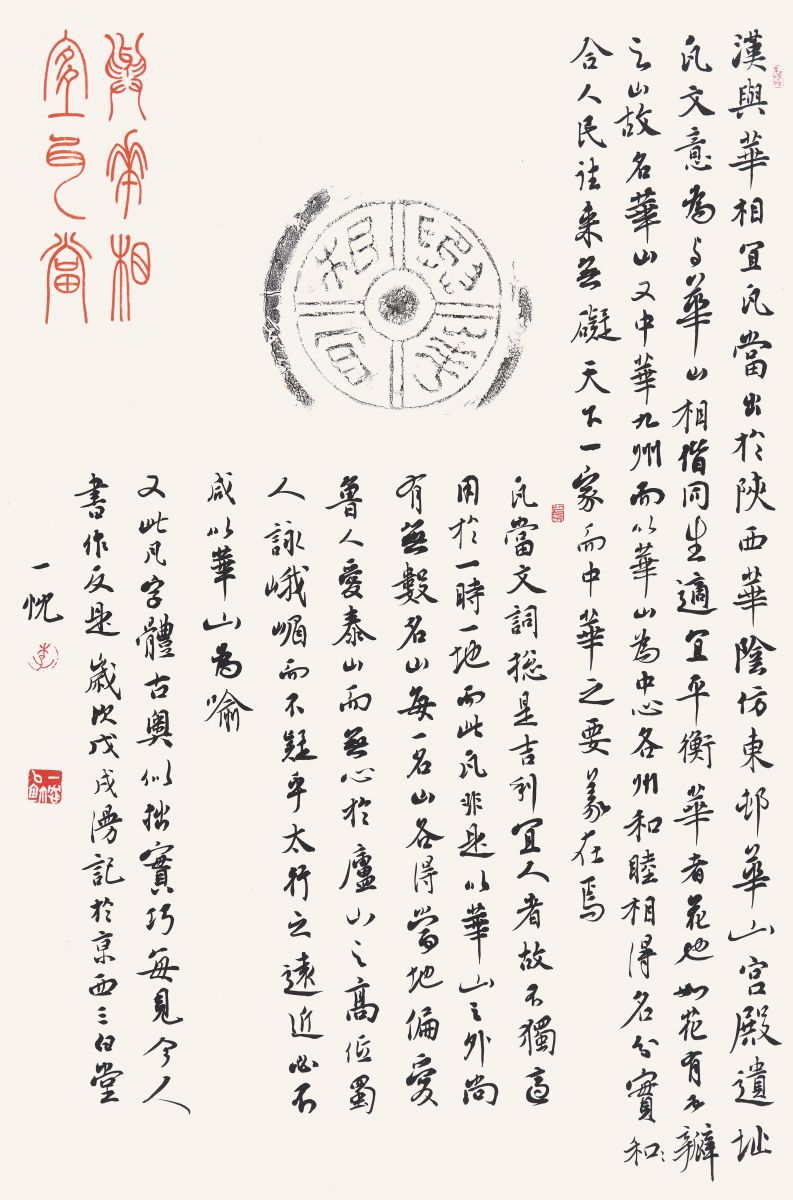 漢與華相宜瓦當出於陝西華陰仿東邨華山宮殿遺址
瓦文意為与華山相偕同生適宜平衡華者花也如花有五瓣
之山故名華山又中華九州而以華山為中心各州和睦相得名分實和〻
合人民往来無礙天下一家而中華之要義在焉
與華
相宜
瓦當文詞総是吉利宜人者故不獨適
用於一時一地而此瓦非是以華山之外尚
有無數名山每一名山各得當地偏愛
魯人愛泰山而無心於廬山之高低蜀
人詠峨嵋而不疑乎太行之遠近必不
咸以華山為喻
又此瓦字體古奧似拙實巧每見今人
書作反是歲次戊戌漫記於京西三白堂
一忱
與華相
宜瓦當
李